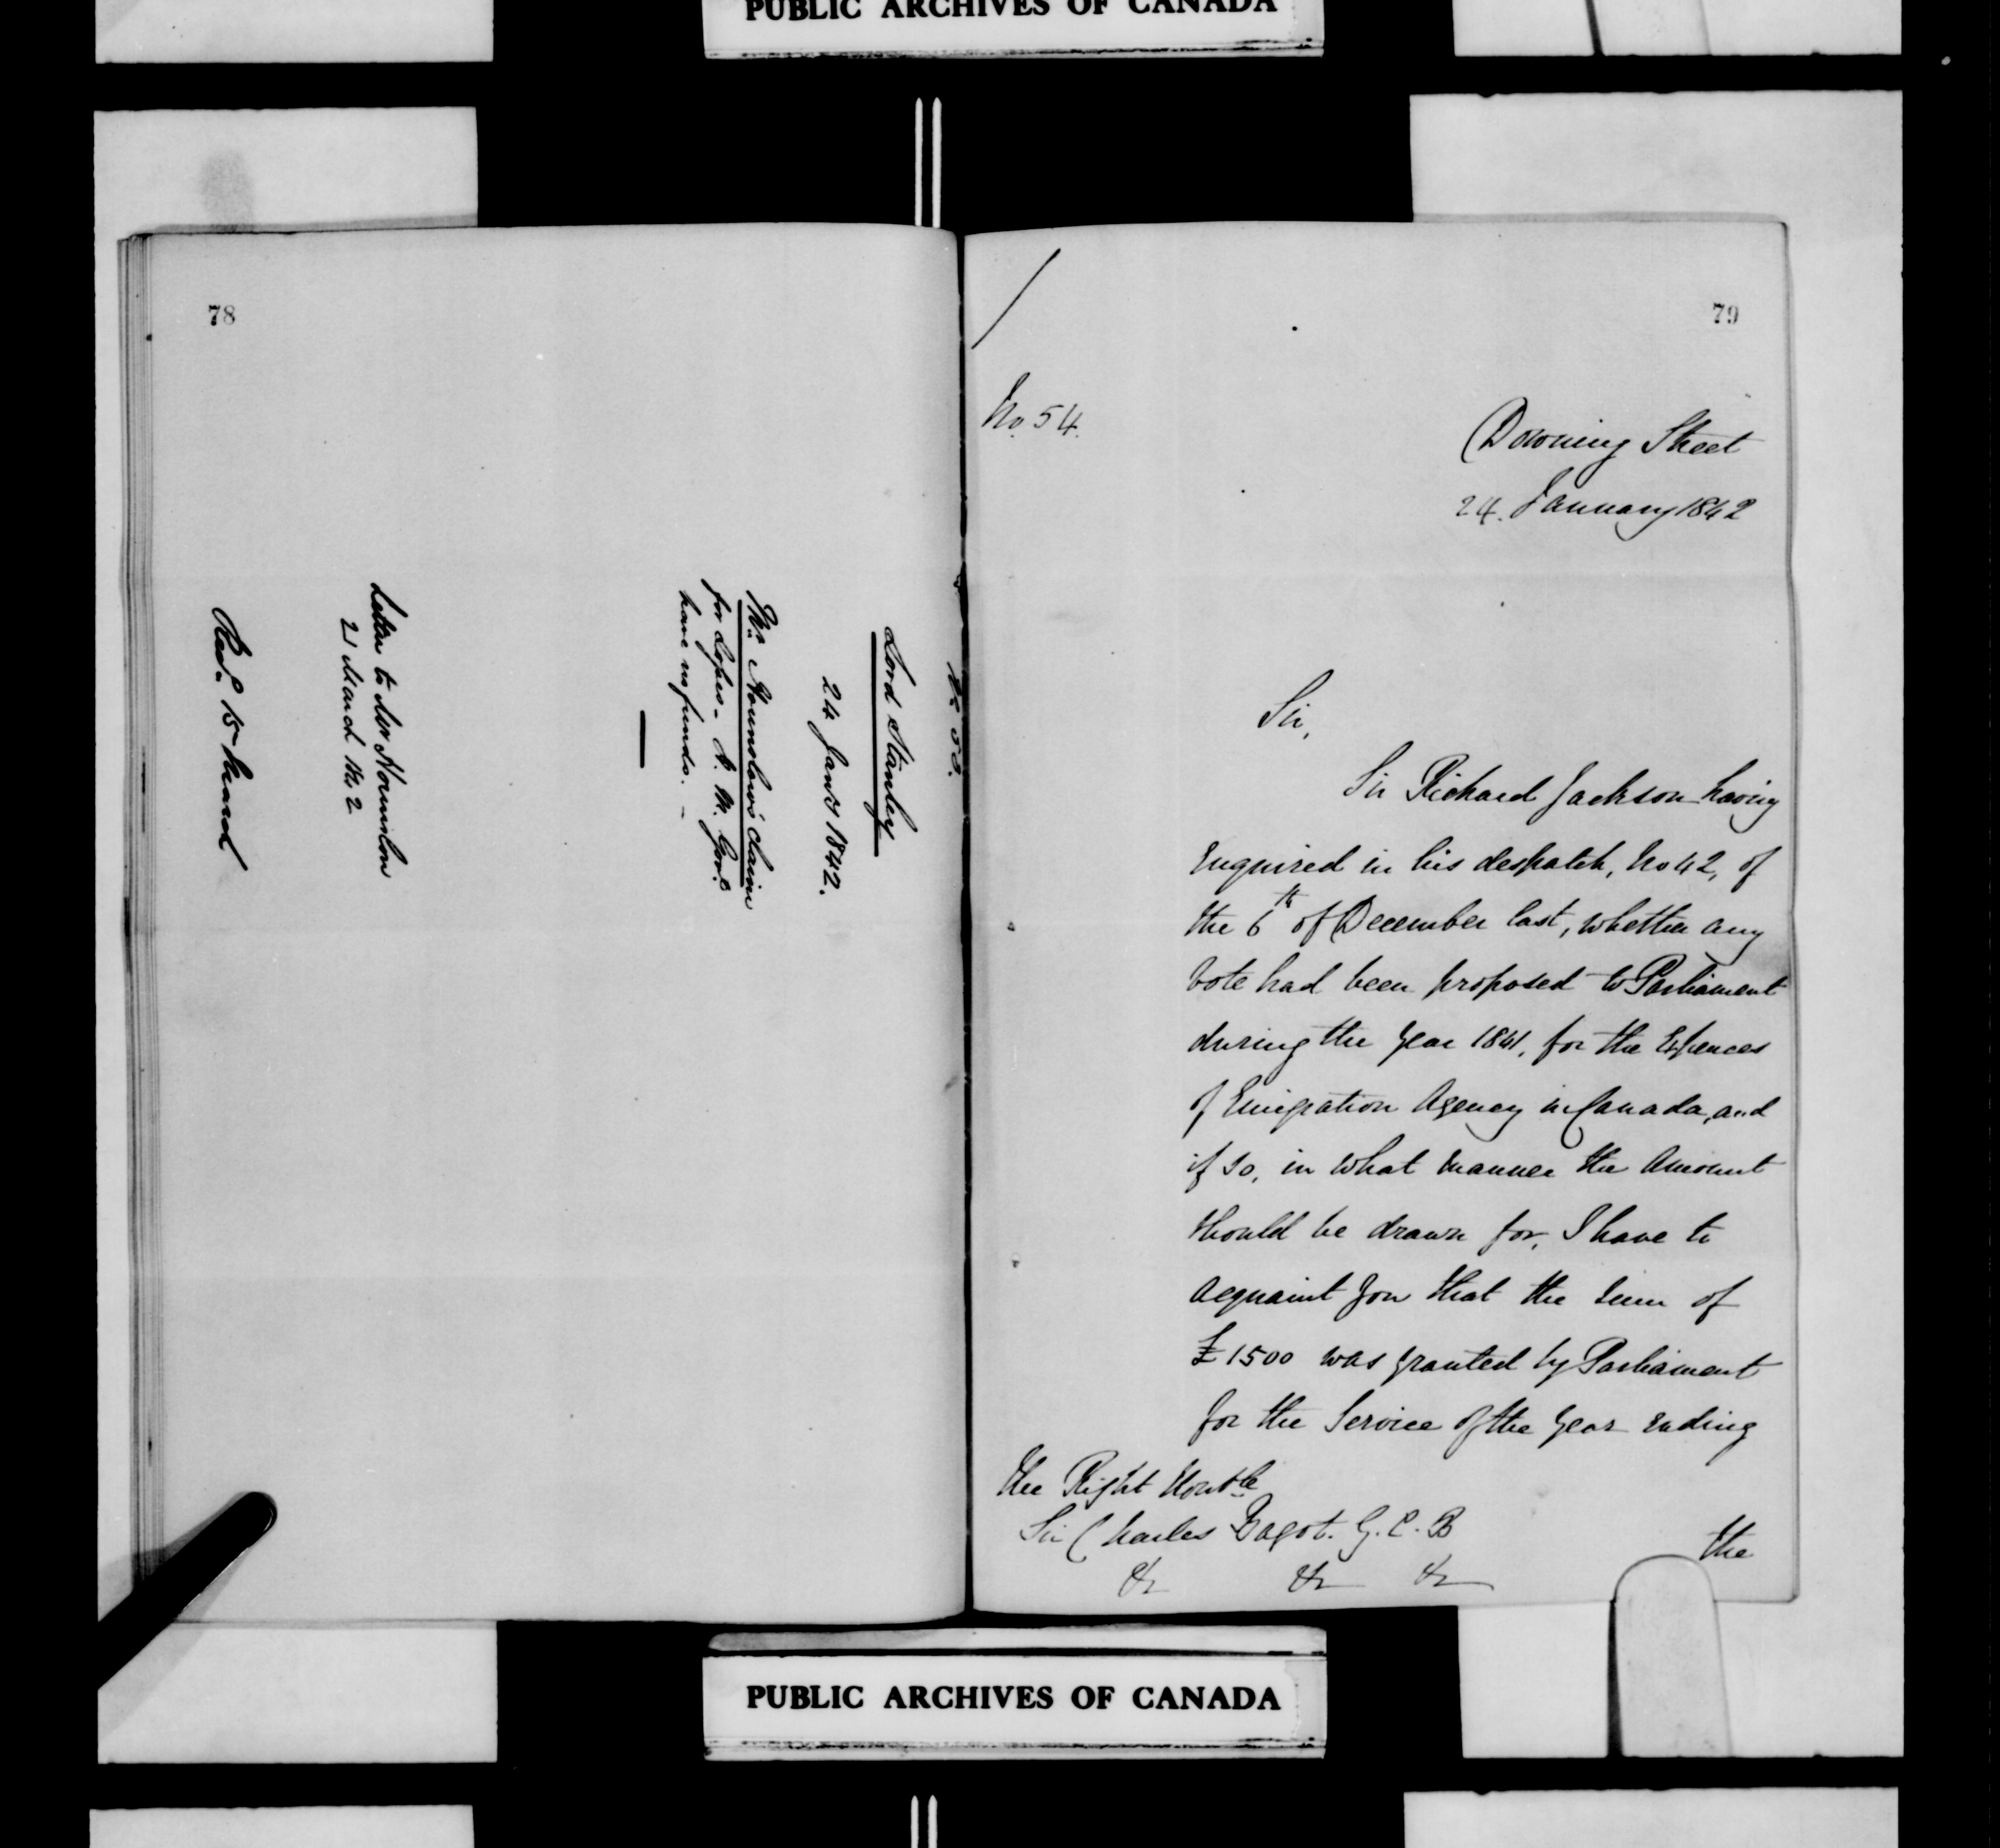 PUBLIC ARCHIVES OF CANADA
78
No 53.
Lord Stanley
24 Jany 1842.
Mr. Hounslow's claim
for Losses - H. M. Govt.
have no funds. -
Letter to Mr Hounslow
21 March 1842
Recd. 15 March
79
No. 54.
Downing Street
24. January 1842
Sir,
Sir Richard Jackson having
enquired in his despatch, No 42, of
the 6th of December last, whether any
vote had been proposed to Parliament
during the year 1841, for the Expences
of Emigration Agency in Canada, and
if so, in what manner the Amount
should be drawn for, I have to
acquaint you that the sum of
£1500 was granted by Parliament
for the Service of the Year ending
The Right Honble
Sir Charles Bagot. G. C. B
&c &c &c
the
PUBLIC ARCHIVES OF CANADA